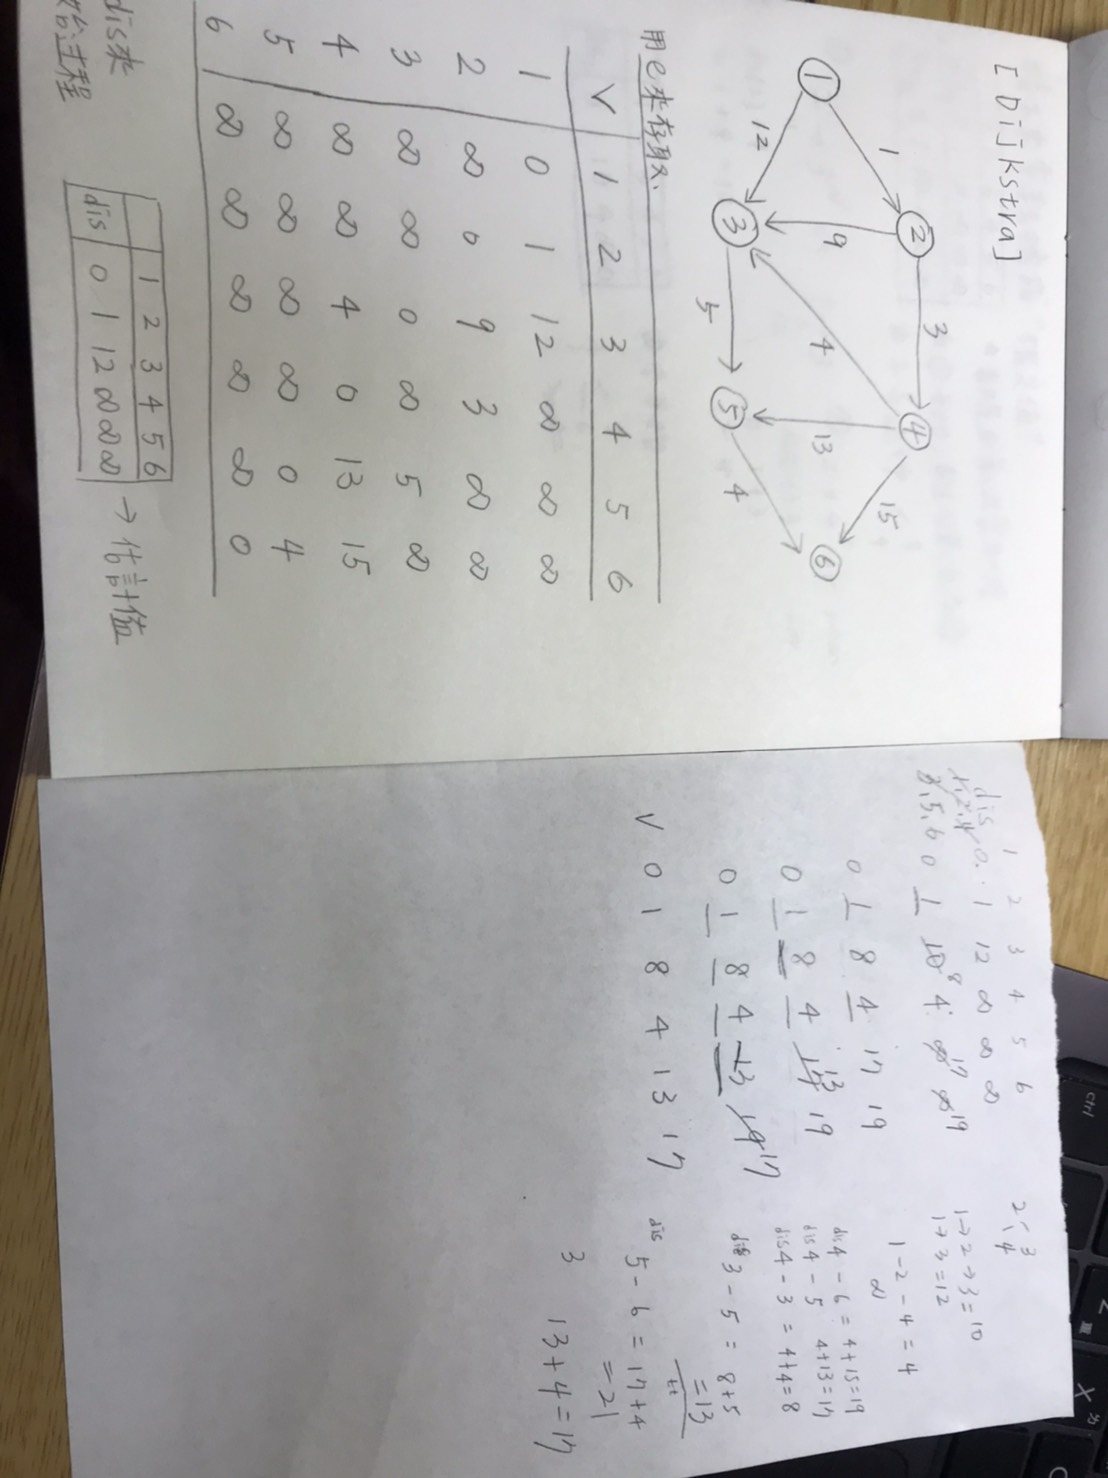 [Dijkstra]
1
2
3
4
5
6
1
12
9
3
4
13
15
5
4
用e来存取.
V 1 2 3 4 5 6
1 0 1 12 ∞ ∞ ∞
2 ∞ 0 9 3 ∞ ∞
3 ∞ ∞ 0 ∞ 5 ∞
4 ∞ ∞ 4 0 13 15
5 ∞ ∞ ∞ ∞ 0 4
6 ∞ ∞ ∞ ∞ ∞ 0
1 2 3 4 5 6
dis 0 1 12 ∞ ∞ ∞ → 估計值
dis来
始过程
1 2 3 4 5 6
dis 0. 1 12 ∞ ∞ ∞
0 1 10 8 4 ∞ 17 ∞ 19
0 1 8 4 17 19
0 1 8 4 17 13 19
0 1 8 4 13 19 17
V 0 1 8 4 13 17
2 3
4
1→2→3=10
1→3=12
1-2-4=4
∞
dis4-6=4+15=19
dis4-5 4+13=17
dis4-3=4+4=8
dis3-5=8+5
=13
dis 5-6=17+4
=21
3 13+4=17
Ctrl
Z
X